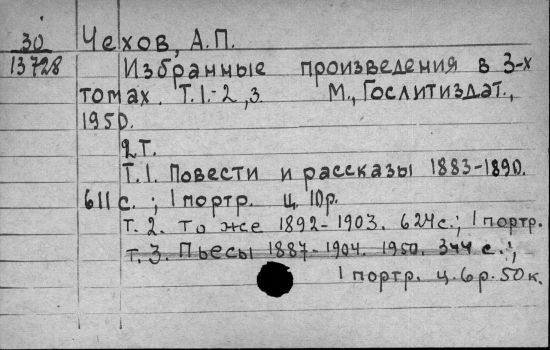 30 Чехов, А.П.
13728 Избранные произведения в 3-х
томах. Т.1.-2,3. М., Гослитиздат.,
1950.
2т.
Т.1. Повести и рассказы 1883-1890.
611 с.; 1 портр. ц. 10р.
т. 2. То же 1892-1903. 624с.; 1 портр.
т. 3. Пьесы 1887-1904. 1950. 344 с.;
1 портр. ц. 6р. 50к.